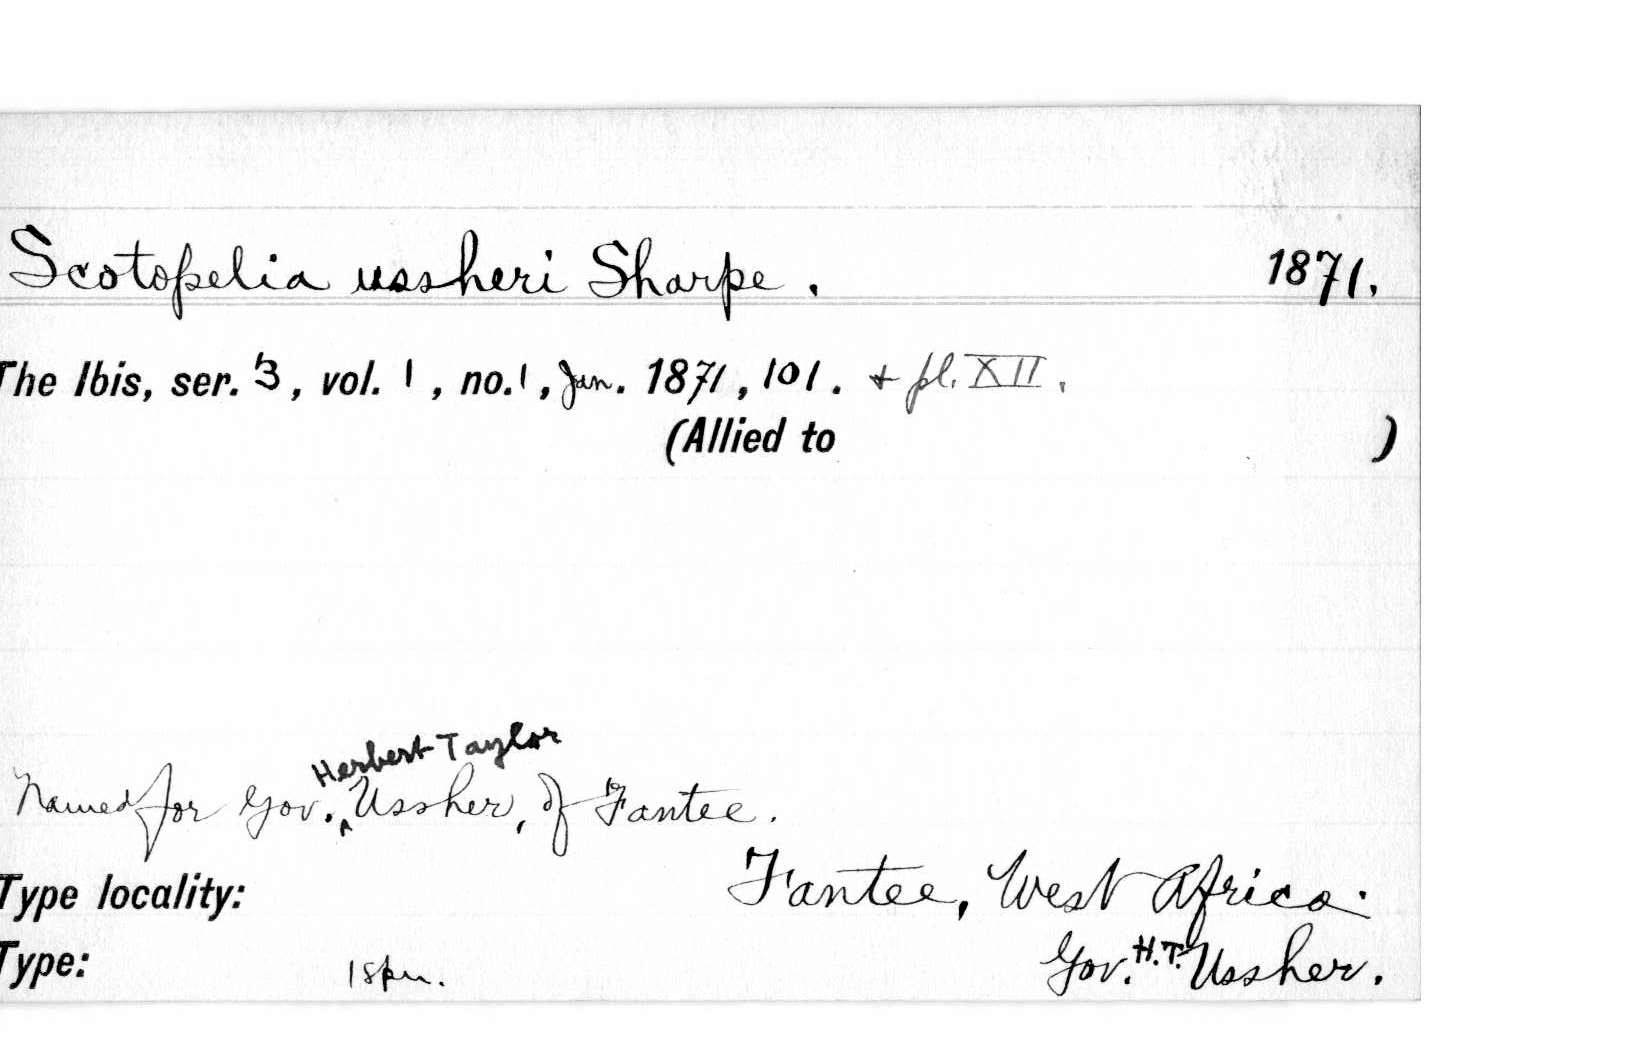 Scotopelia ussheri Sharpe. 1871.
The Ibis, ser. 3, vol. 1, no. 1, Jan. 1871, 101. + pl. XII.
(Allied to )
Herbert Taylor
Named for Gov. ^ Ussher, of Fantee.
Type locality: Fantee, West Africa.
Type: 1 spm. Gov. H.T. Ussher.